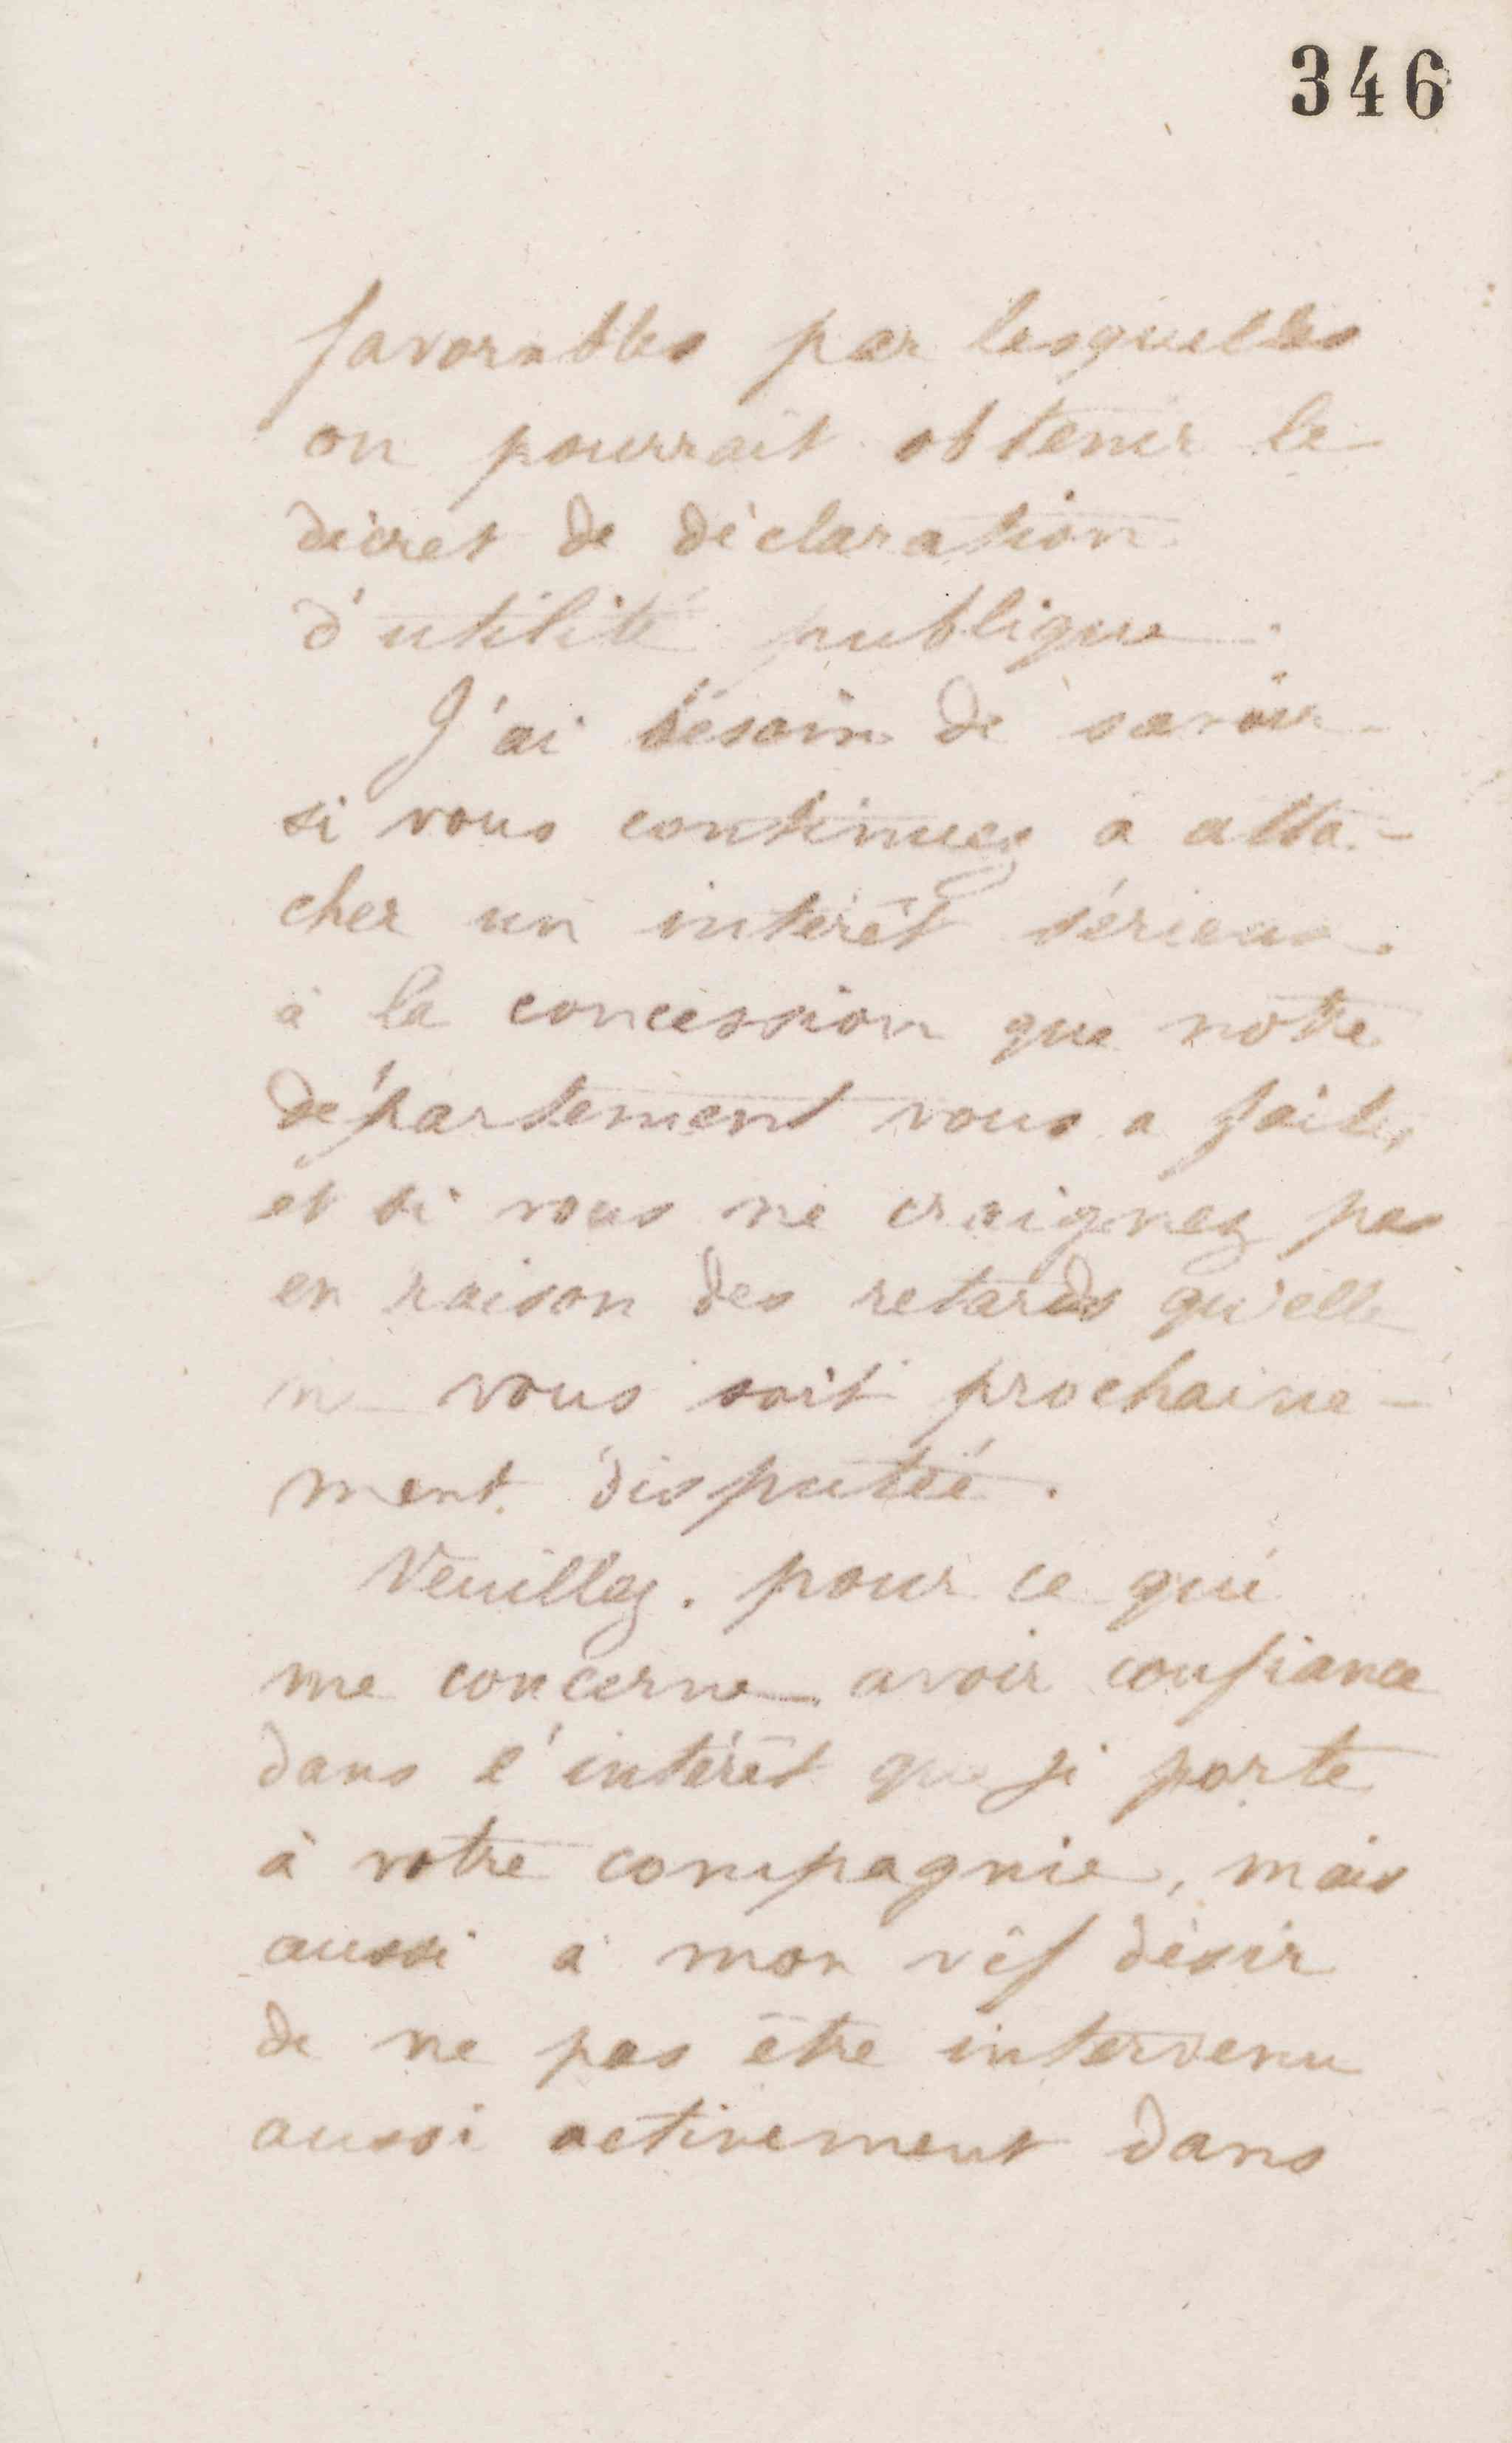 346
favorables par lesquelles
on pourrait obtenir le
décret de déclaration
d'utilité publique.
J'ai besoin de savoir
si vous continuez à atta-
cher un intérêt sérieux
à la concession que notre
département vous a faite,
et si vous ne craignez pas
en raison des retards qu'elle
ne vous soit prochaine-
ment disputée.
Veuillez. pour ce qui
me concerne avoir confiance
dans l'intérêt que je porte
à votre compagnie, mais
aussi à mon vif désir
de ne pas être intervenu
aussi activement dans